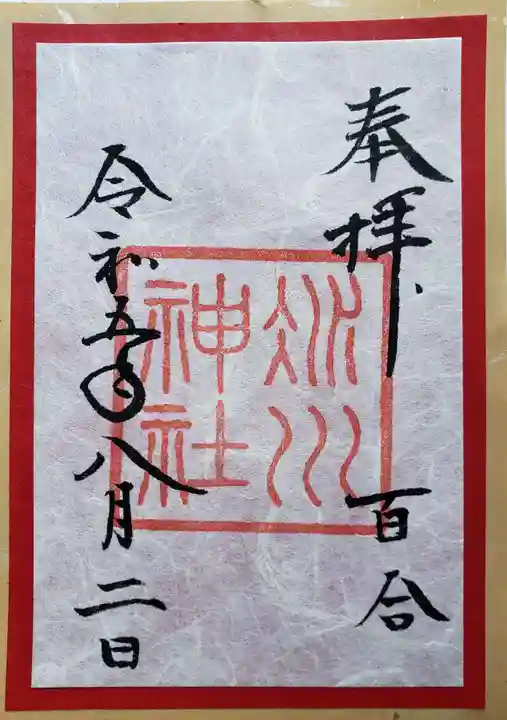 奉拝、
百合
氷川
神社
令和五年八月二日